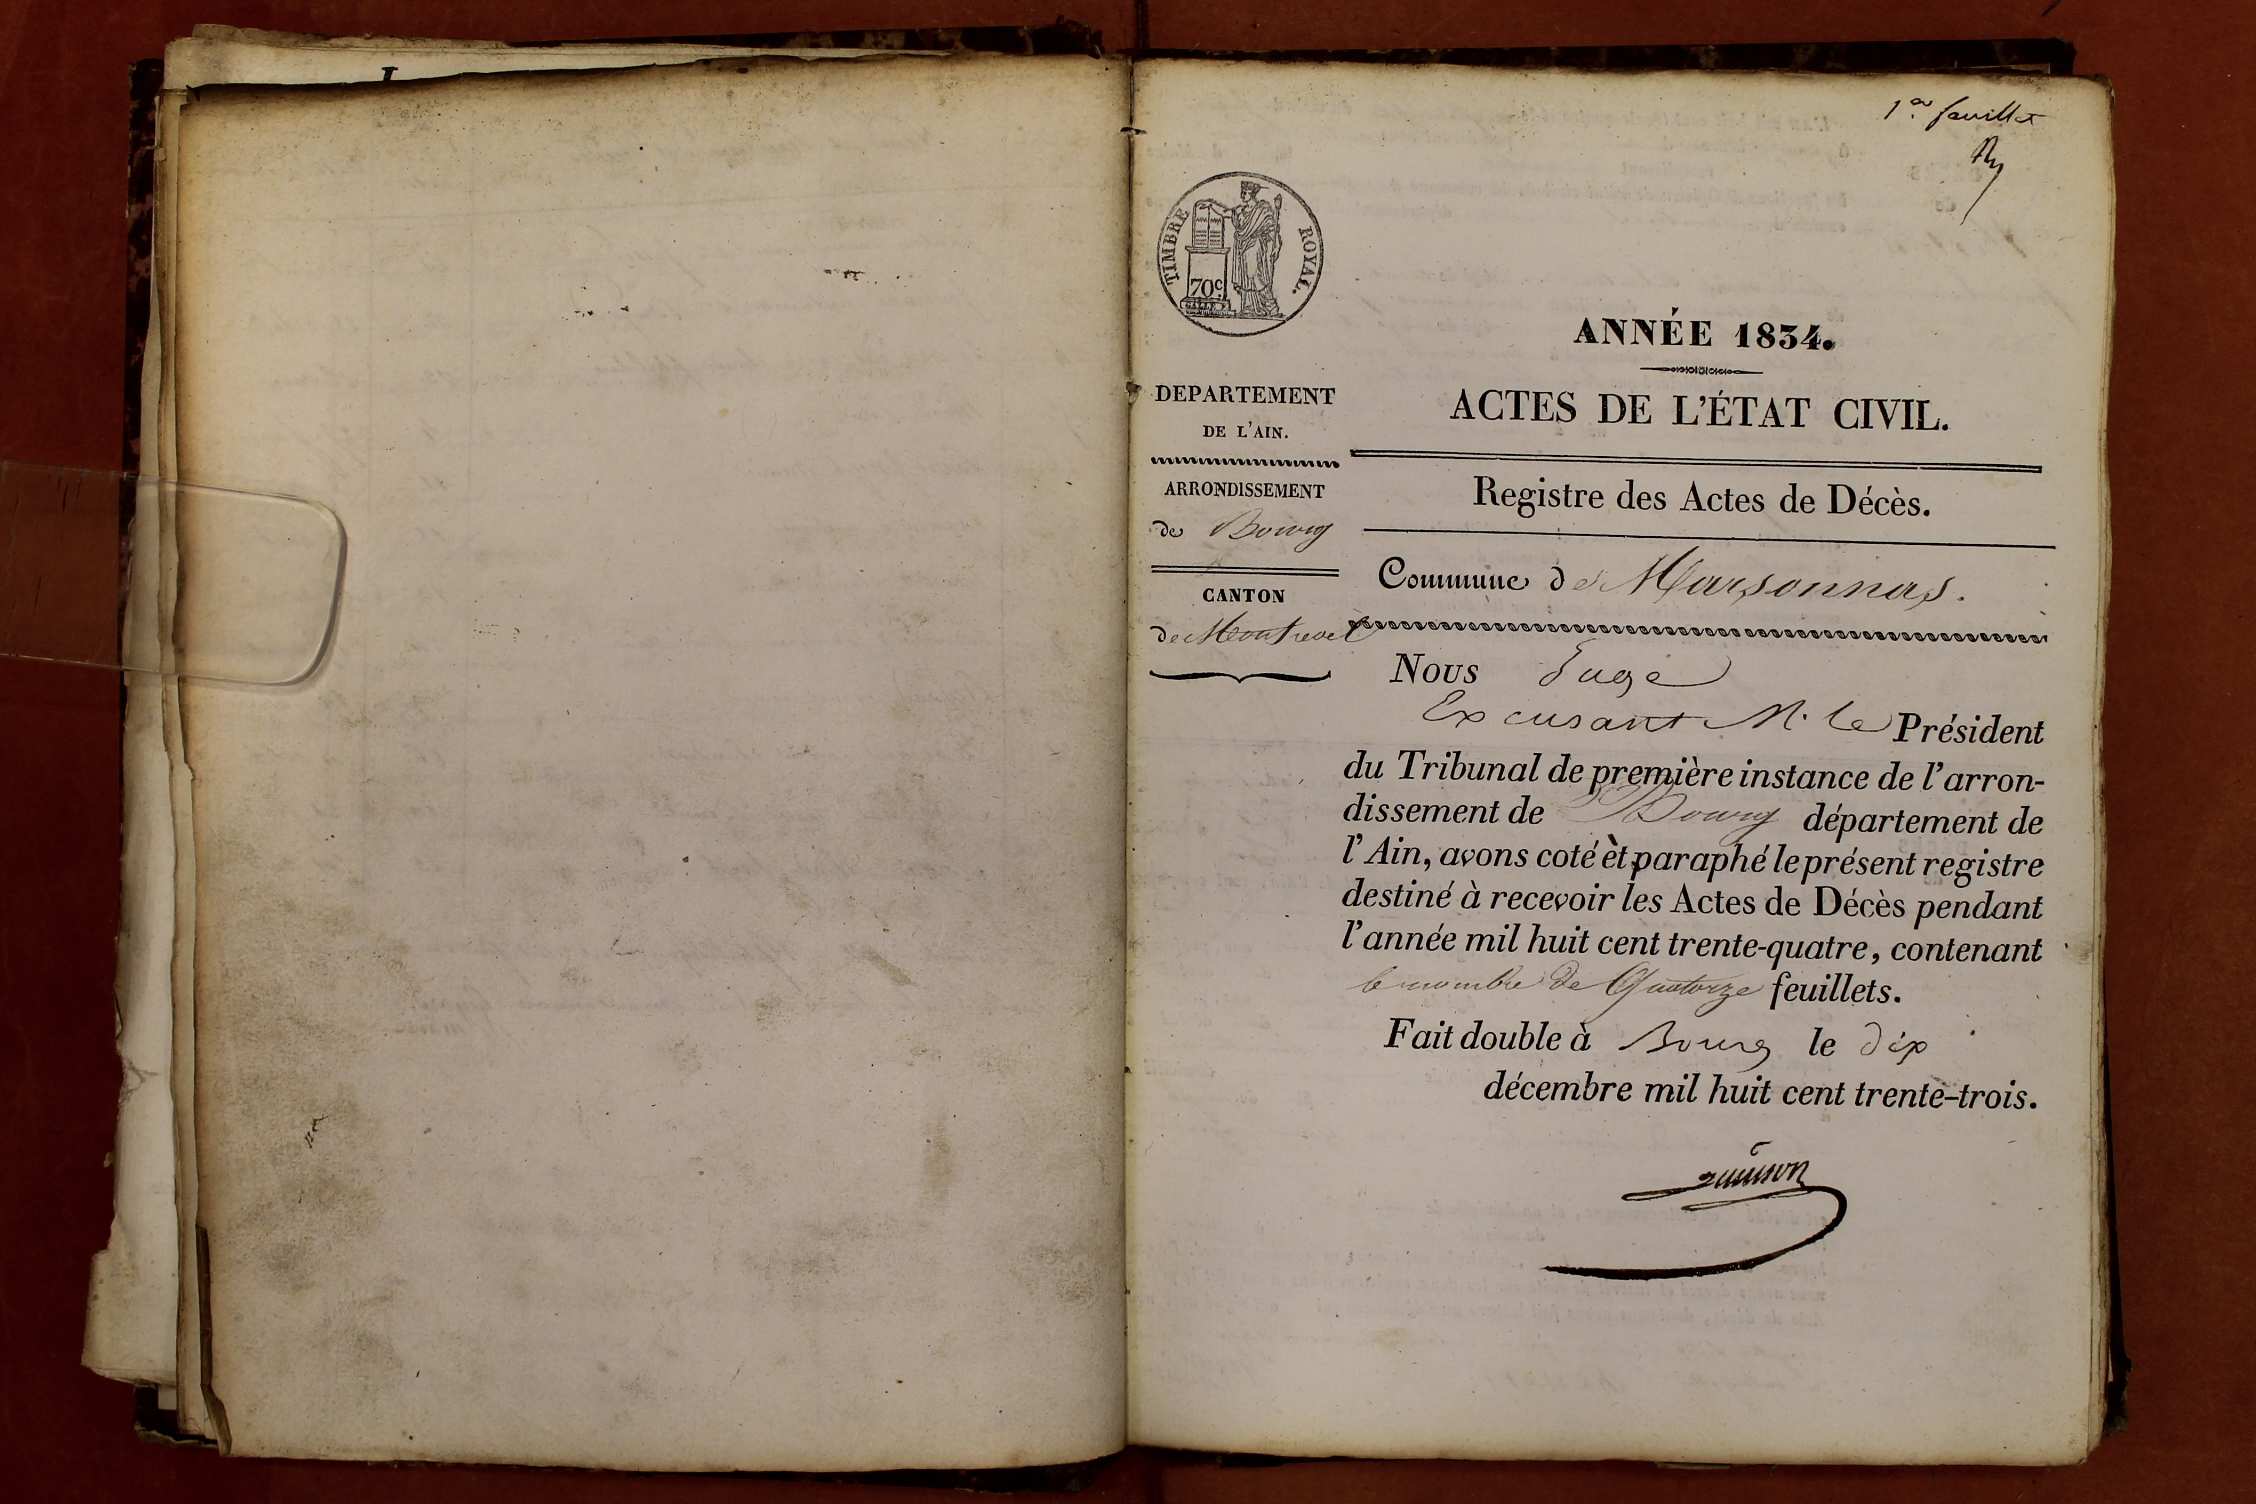 1er feuillet
TIMBRE ROYAL.
70c.
GALLE F.
ANNÉE 1834.
ACTES DE L'ÉTAT CIVIL.
DEPARTEMENT
DE L'AIN.
ARRONDISSEMENT
de Bourg
CANTON
de Montrevel
Registre des Actes de Décès.
Commune de Marsonnas.
Nous Juge
Excusant M. le Président
du Tribunal de première instance de l'arron-
dissement de Bourg département de
l'Ain, avons coté èt paraphé le présent registre
destiné à recevoir les Actes de Décès pendant
l'année mil huit cent trente-quatre, contenant
le nombre de Quatorze feuillets.
Fait double à Bourg le dix
décembre mil huit cent trente-trois.